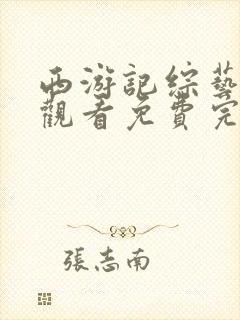 西游記綜藝
觀看免費完
張志南